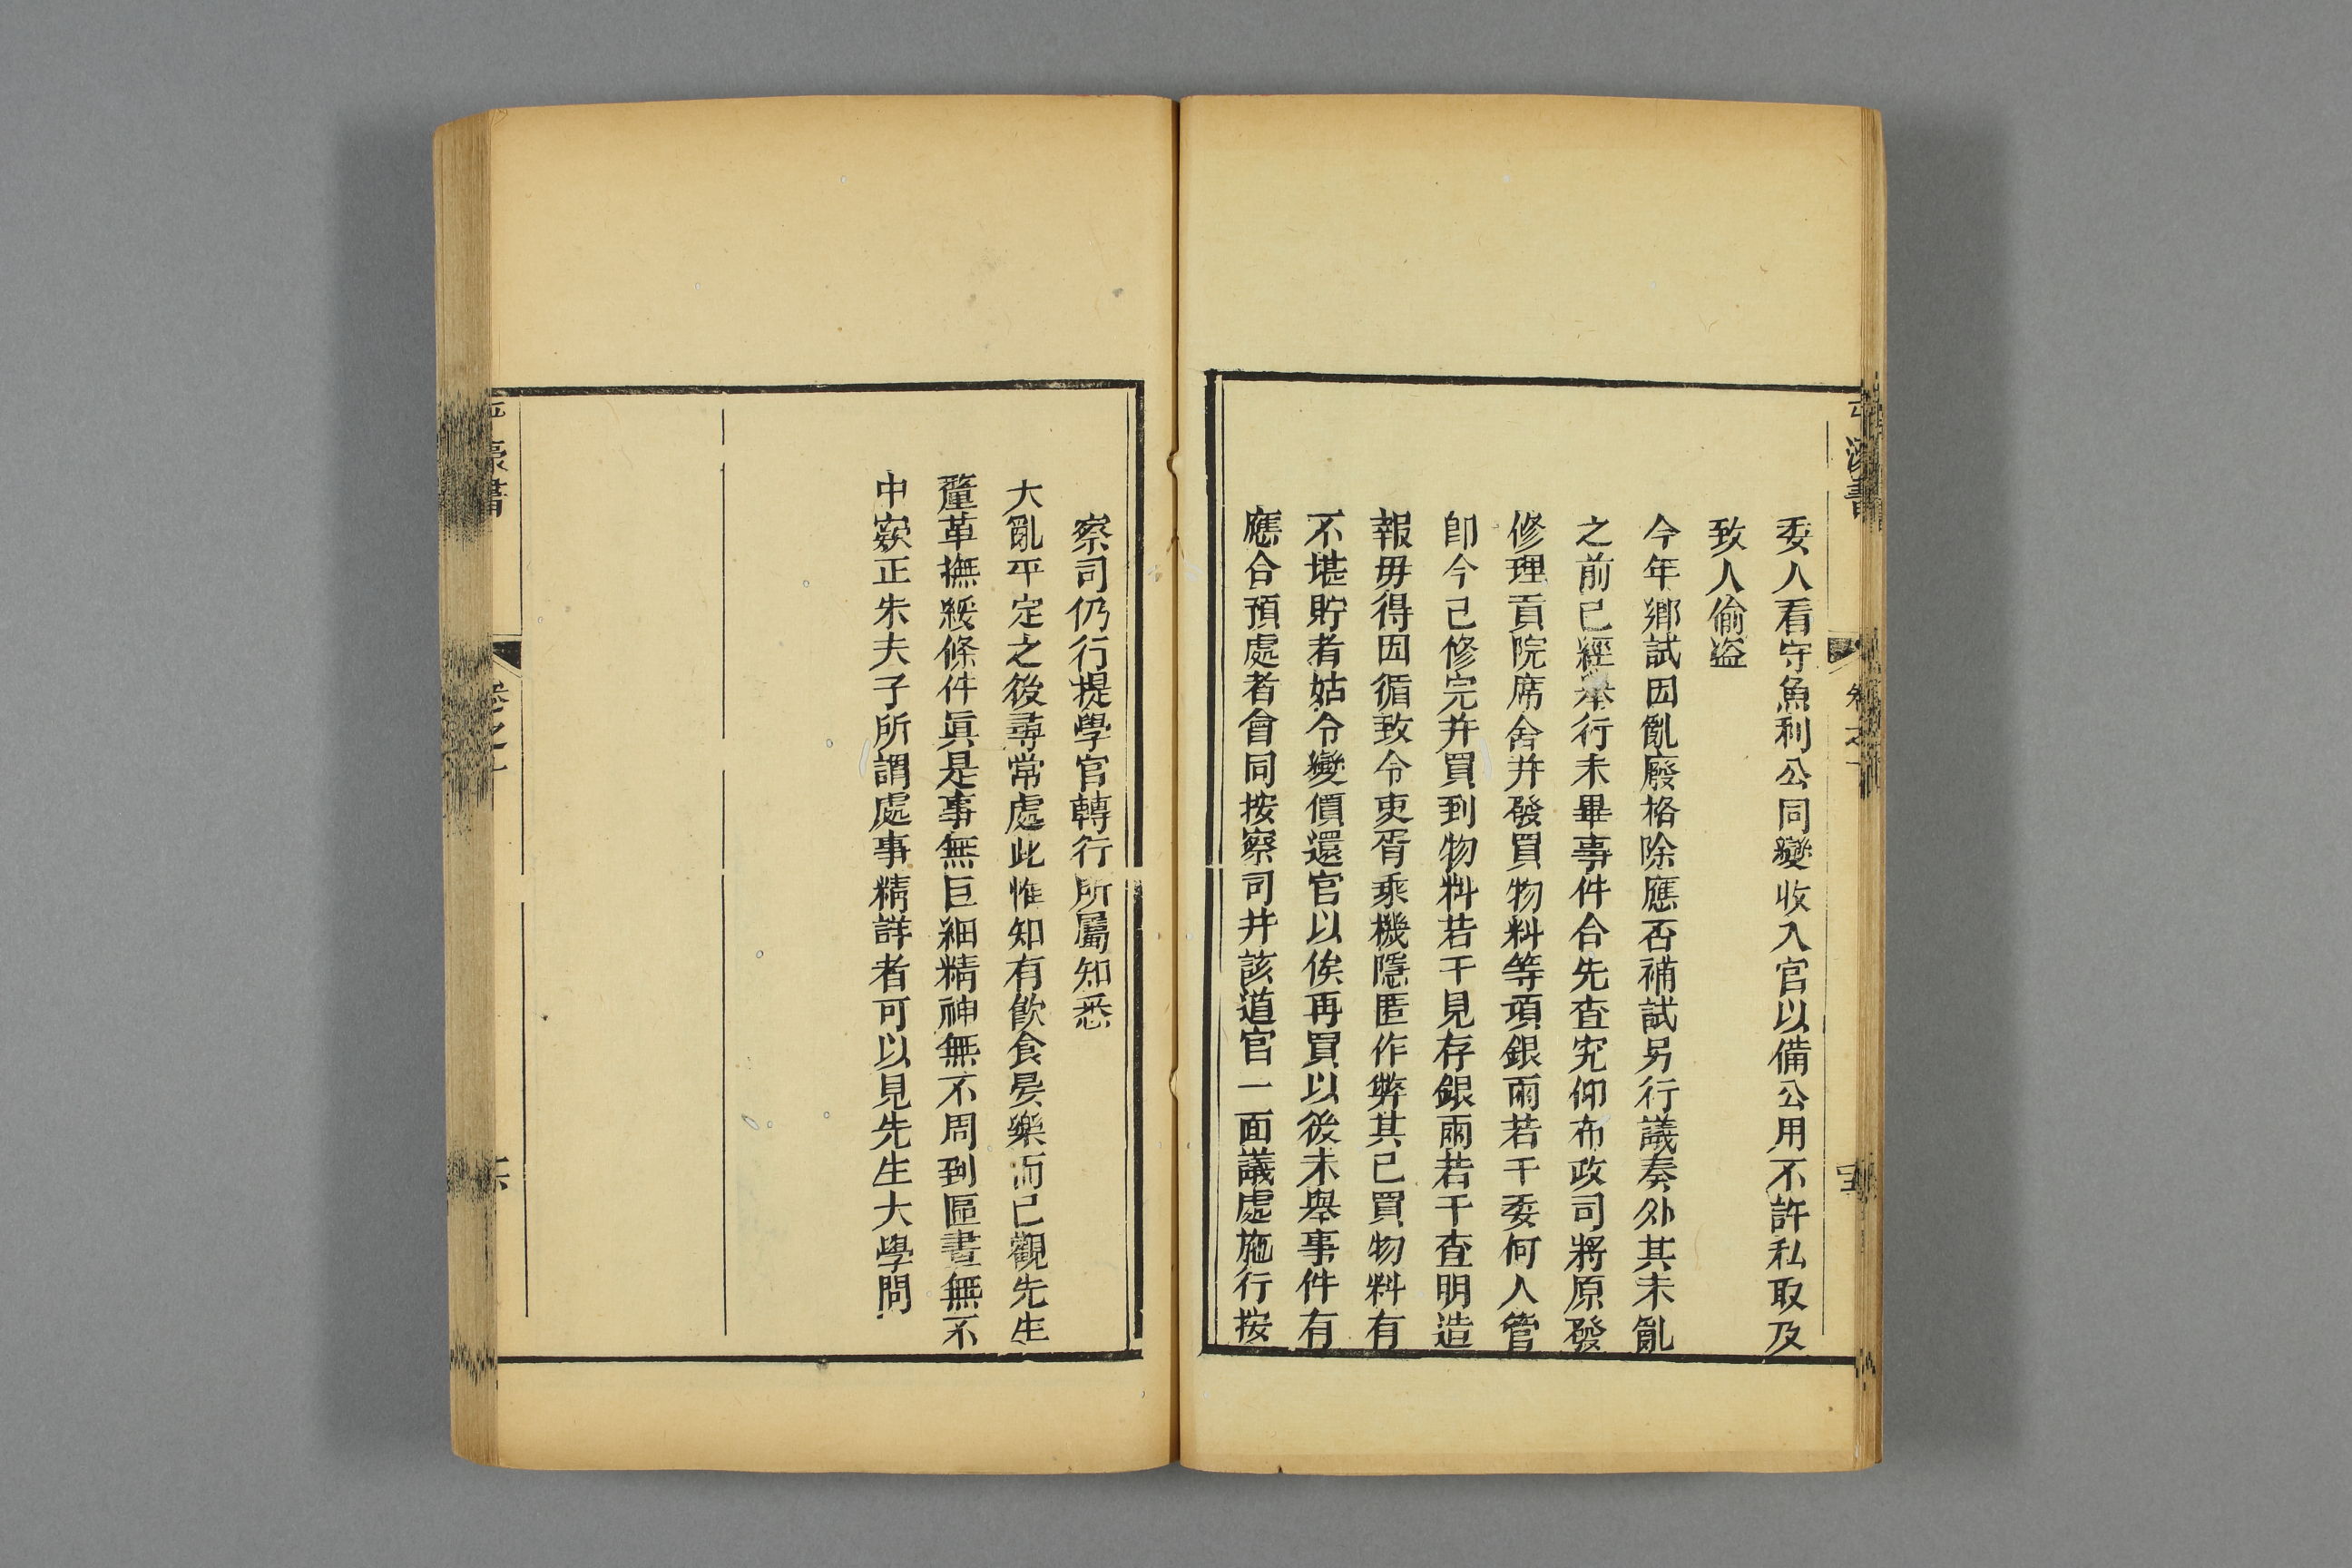 委人看守魚利公同變收入官以備公用不許私取及
致人偷盜
今年鄉試因亂廢格除應否補試另行議奏外其未亂
之前已經舉行未畢事件合先查究仰布政司將原發
修理貢院席舍并發買物料等項銀兩若干委何人管
卽今已修完并買到物料若干見存銀兩若干查明造
報毋得因循致令吏胥乘機隱匿作弊其已買物料有
不堪貯者姑令變價還官以俟再買以後未舉事件有
應合預處者會同按察司并該道官一面議處施行按
察司仍行提學官轉行所屬知悉
大亂平定之後尋常處此惟知有飲食晏樂而已觀先生
釐革撫綏條件眞是事無巨細精神無不周到區畫無不
中窾正朱夫子所謂處事精詳者可以見先生大學問
卷之一